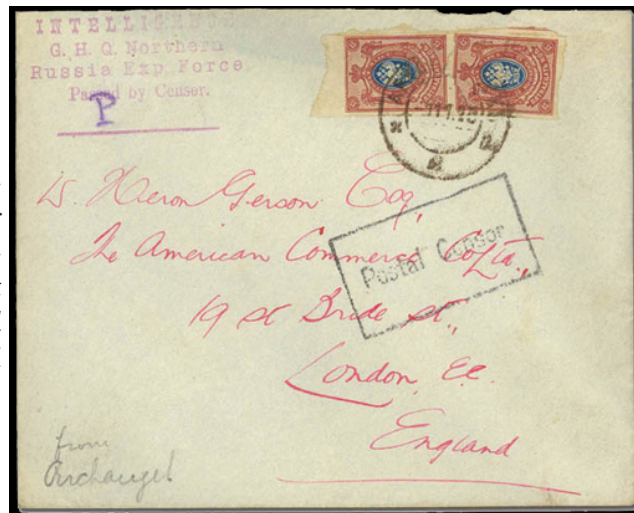 INTELLIGENCE
G. H. Q. Northern
Russia Exp Force
Passed by Censor.
P
11.1.19
W. Heron Gerson Esq,
The American Commerce Co Ltd,
Postal Censor
19 St Bride St,,
London, EC.
England
from
Archangel